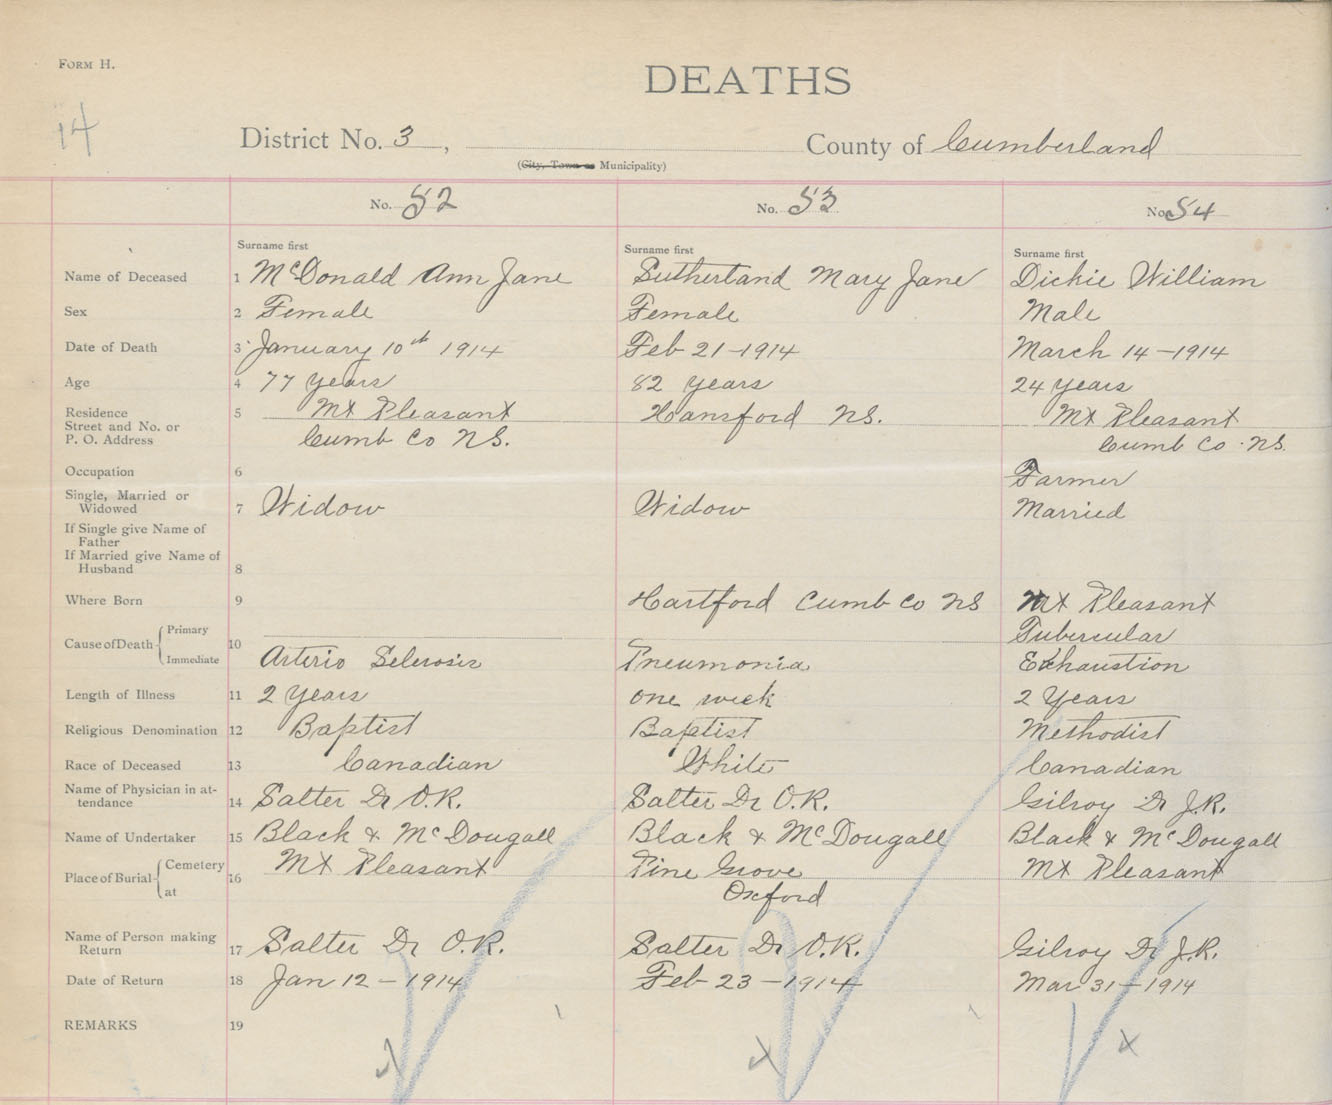 FORM H.
DEATHS
14
District No. 3, County of Cumberland
(City, Town or Municipality)
No. 52 No. 53 No. 54
Surname first Surname first Surname first
Name of Deceased 1 McDonald Ann Jane Sutherland Mary Jane Dickie William
Sex 2 Female Female Male
Date of Death 3 January 10th 1914 Feb 21-1914 March 14-1914
Age 4 77 years 82 years 24 years
Residence 5 Mt Pleasant Hansford NS. Mt Pleasant
Street and No. or
P. O. Address Cumb Co NS. Cumb Co. NS.
Occupation 6 Farmer
Single, Married or
Widowed 7 Widow Widow Married
If Single give Name of
Father
If Married give Name of
Husband 8
Where Born 9 Hartford Cumb Co NS Mt Pleasant
Cause of Death Primary 10 Tubercular
Immediate Arterio Selerosis Pneumonia Exhaustion
Length of Illness 11 2 Years one week 2 Years
Religious Denomination 12 Baptist Baptist Methodist
Race of Deceased 13 Canadian White Canadian
Name of Physician in at-
tendance 14 Salter Dr O.R. Salter Dr O.R. Gilroy Dr J.R.
Name of Undertaker 15 Black & McDougall Black & McDougall Black & McDougall
Place of Burial Cemetery 16 Mt Pleasant Pine Grove Mt Pleasant
at Oxford
Name of Person making
Return 17 Salter Dr O.R. Salter Dr O.R. Gilroy Dr J.R.
Date of Return 18 Jan 12-1914 Feb 23-1914 Mar 31-1914
REMARKS 19